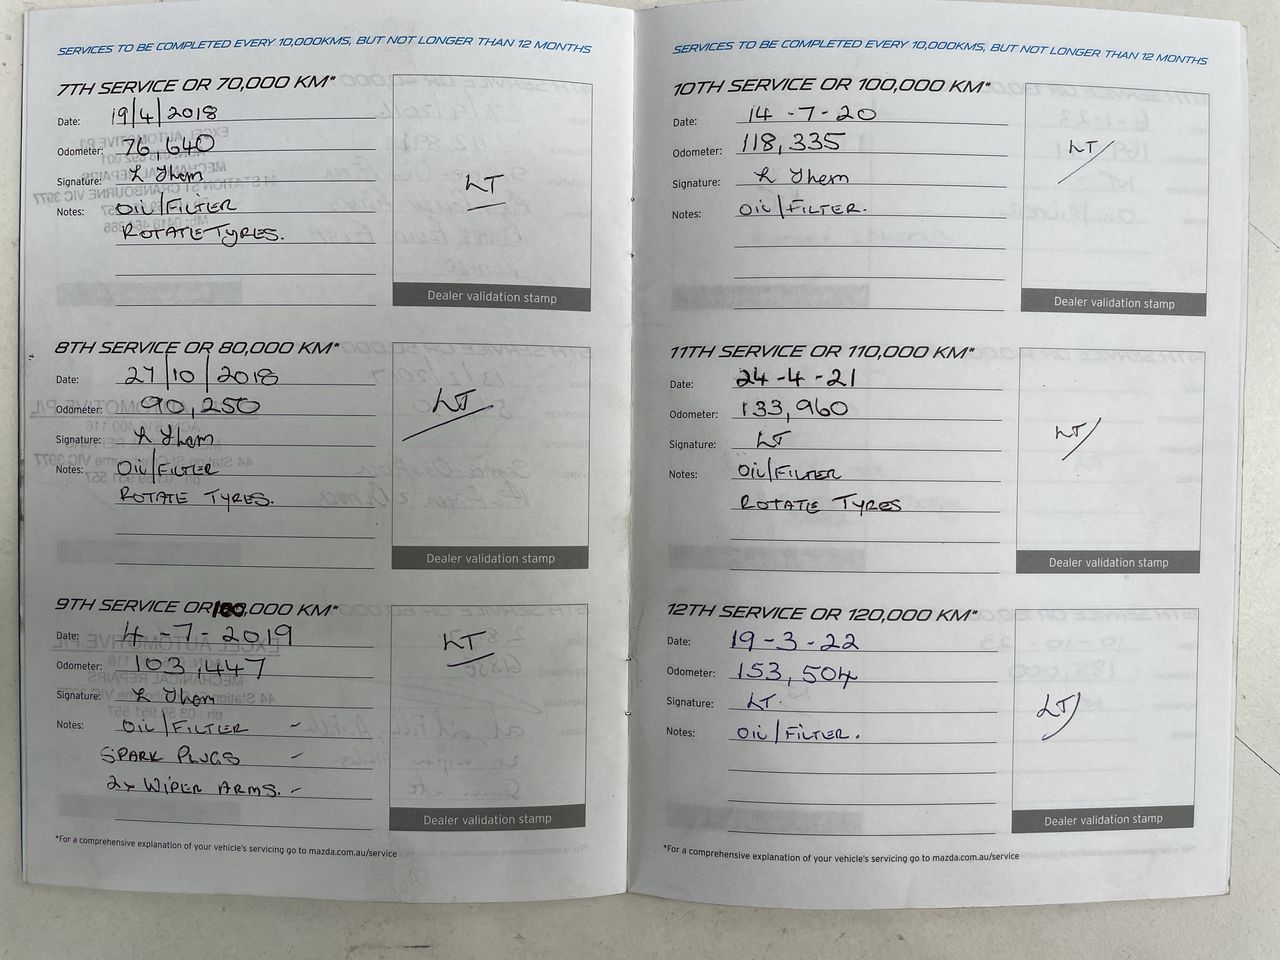 SERVICES TO BE COMPLETED EVERY 10,000KMS, BUT NOT LONGER THAN 12 MONTHS
7TH SERVICE OR 70,000 KM*
Date: 19/4/2018
Odometer: 76,640
Signature: L Thom
Notes: OIL/FILTER
ROTATE TYRES.
LT
Dealer validation stamp
8TH SERVICE OR 80,000 KM*
Date: 27/10/2018
Odometer: 90,250
Signature: L Thom
Notes: OIL/FILTER
ROTATE TYRES.
LT
Dealer validation stamp
9TH SERVICE OR 100,000 KM*
Date: 4-7-2019
Odometer: 103,447
Signature: L Thom
Notes: OIL/FILTER -
SPARK PLUGS -
2x WIPER ARMS. -
LT
Dealer validation stamp
*For a comprehensive explanation of your vehicle's servicing go to mazda.com.au/service
SERVICES TO BE COMPLETED EVERY 10,000KMS, BUT NOT LONGER THAN 12 MONTHS
10TH SERVICE OR 100,000 KM*
Date: 14-7-20
Odometer: 118,335
Signature: L Thom
Notes: OIL/FILTER.
LT
Dealer validation stamp
11TH SERVICE OR 110,000 KM*
Date: 24-4-21
Odometer: 133,960
Signature: LT
Notes: OIL/FILTER
ROTATE TYRES
LT
Dealer validation stamp
12TH SERVICE OR 120,000 KM*
Date: 19-3-22
Odometer: 153,504
Signature: LT.
Notes: OIL/FILTER.
LT
Dealer validation stamp
*For a comprehensive explanation of your vehicle's servicing go to mazda.com.au/service